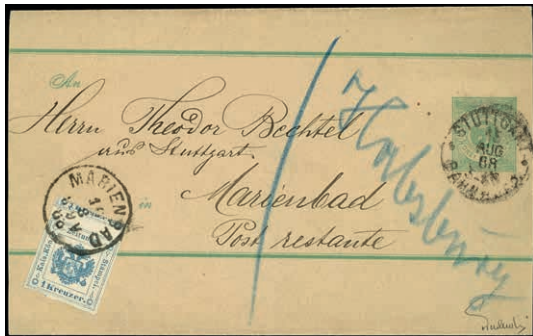 An
Herrn Theodor Bechtel
aus Stuttgart
in
Marienbad
Post restante
Habsburg
STUTTGART
AUG
88
MARIENBAD
1 Kreuzer.